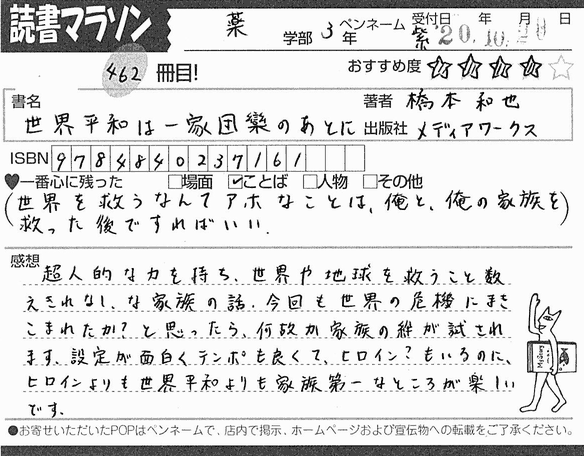 読書マラソン
薬 学部 3年 ペンネーム 紫 受付日 年 月 日
20.10.20
462 冊目! おすすめ度 ★★★★☆
書名 著者 橋本和也
世界平和は一家団欒のあとに 出版社 メディアワークス
ISBN 9784840237161
♥一番心に残った □場面 ☑ことば □人物 □その他
(世界を救うなんてアホなことは、俺と、俺の家族を)
救った後ですればいい.
感想
超人的な力を持ち、世界や地球を救うこと数
えきれなし、な家族の話.今回も世界の危機にまき
こまれたか?と思ったら、何故か家族の絆が試され
ます.設定が面白くテンポも良くて、ヒロイン?もいるのに、
ヒロインよりも世界平和よりも家族第一なところが楽しい
です.
●お寄せいただいたPOPはペンネームで、店内で掲示、ホームページおよび宣伝物への転載をご了承ください。